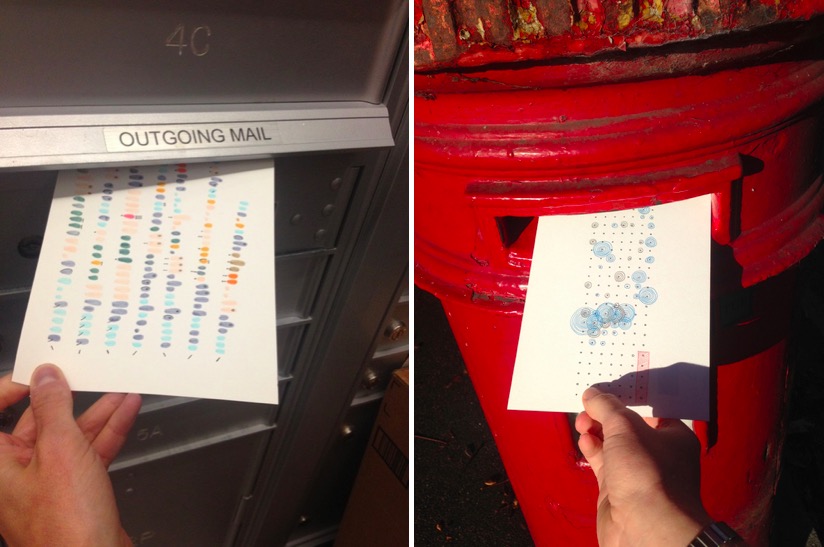 4C
OUTGOING MAIL
5A